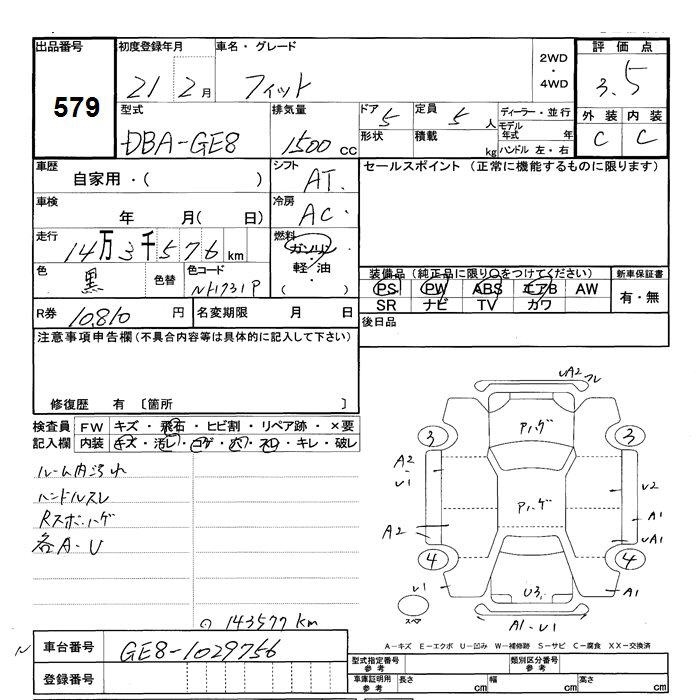 出品番号 初度登録年月 車名・グレード 2WD・4WD 評価点
579 21 2月 フィット 3.5
型式 排気量 ドア 5 定員 5人 ディーラー・並行 外装 内装
DBA-GE8 1500cc 形状 積載 kg モデル年式 年 C C
ハンドル 左・右
車歴 自家用・( ) シフト AT. セールスポイント (正常に機能するものに限ります)
車検 年 月( 日) 冷房 AC・
走行 14万3千576km 燃料 ガソリン・軽油・( )
色 黒 色替 色コード NH731P
装備品(純正品に限り○をつけてください) 新車保証書
PS PW ABS エアB AW 有・無
SR ナビ TV カワ
R券 10,810円 名変期限 月 日 後日品
注意事項申告欄(不具合内容等は具体的に記入して下さい)
修復歴 有 〔箇所 〕
検査員 FW キズ・飛石・ヒビ割・リペア跡・×要
記入欄 内装 キズ・汚レ・コゲ・穴・スレ・キレ・破レ
ルーム内汚れ
ハンドルスレ
Rスポハゲ
各A・U
143577km
UA2 フレ
Pハゲ
3 3
A2・U1
Pハゲ
U2
A1
A2
4 4
U1 U3 A1
スペア
A1・U1
A-キズ E-エクボ U-凹み W-補修跡 S-サビ C-腐食 XX-交換済
N 車台番号 GE8-1029756
登録番号
型式指定番号 参考 類別区分番号 参考
車庫証明用 参考 長さ cm 幅 cm 高さ cm